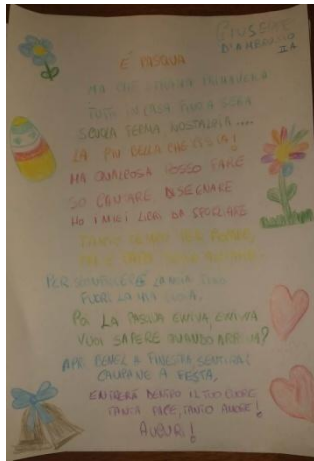 GIUSEPPE
D'AMBROSIO
II A
È PASQUA
MA CHE STRANA
TUTTI IN CASA FINO A SERA
SCUOLA FERMA, NOSTALGIA....
LA PIÙ BELLA CHE CI SIA!
MA QUALCOSA POSSO FARE
SO CANTARE, DISEGNARE
HO I MIEI LIBRI DA SFOGLIARE
PER
FUORI LA MIA
POI LA PASQUA EVVIVA, EVVIVA
VUOI SAPERE QUANDO ARRIVA?
APRI BENE LA FINESTRA SENTIRAI
CAMPANE A FESTA,
ENTRERÀ DENTRO IL TUO CUORE
TANTA PACE, TANTO AMORE!
AUGURI!